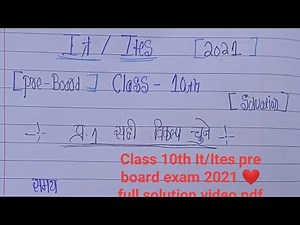 It / Ites [2021]
[Pre-Board] Class - 10th
[Soluation]
प्र.1 सही विकल्प चुने
Class 10th It/Ites pre
board exam 2021 ❤️
समय
full solution video pdf